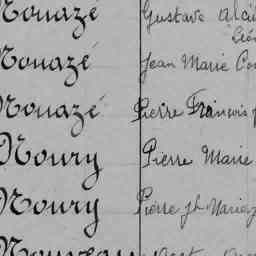 Nouazé Gustave
Nouazé Jean Marie
Nouazé Pierre François
Noury Pierre Marie
Noury Pierre Jh Marie